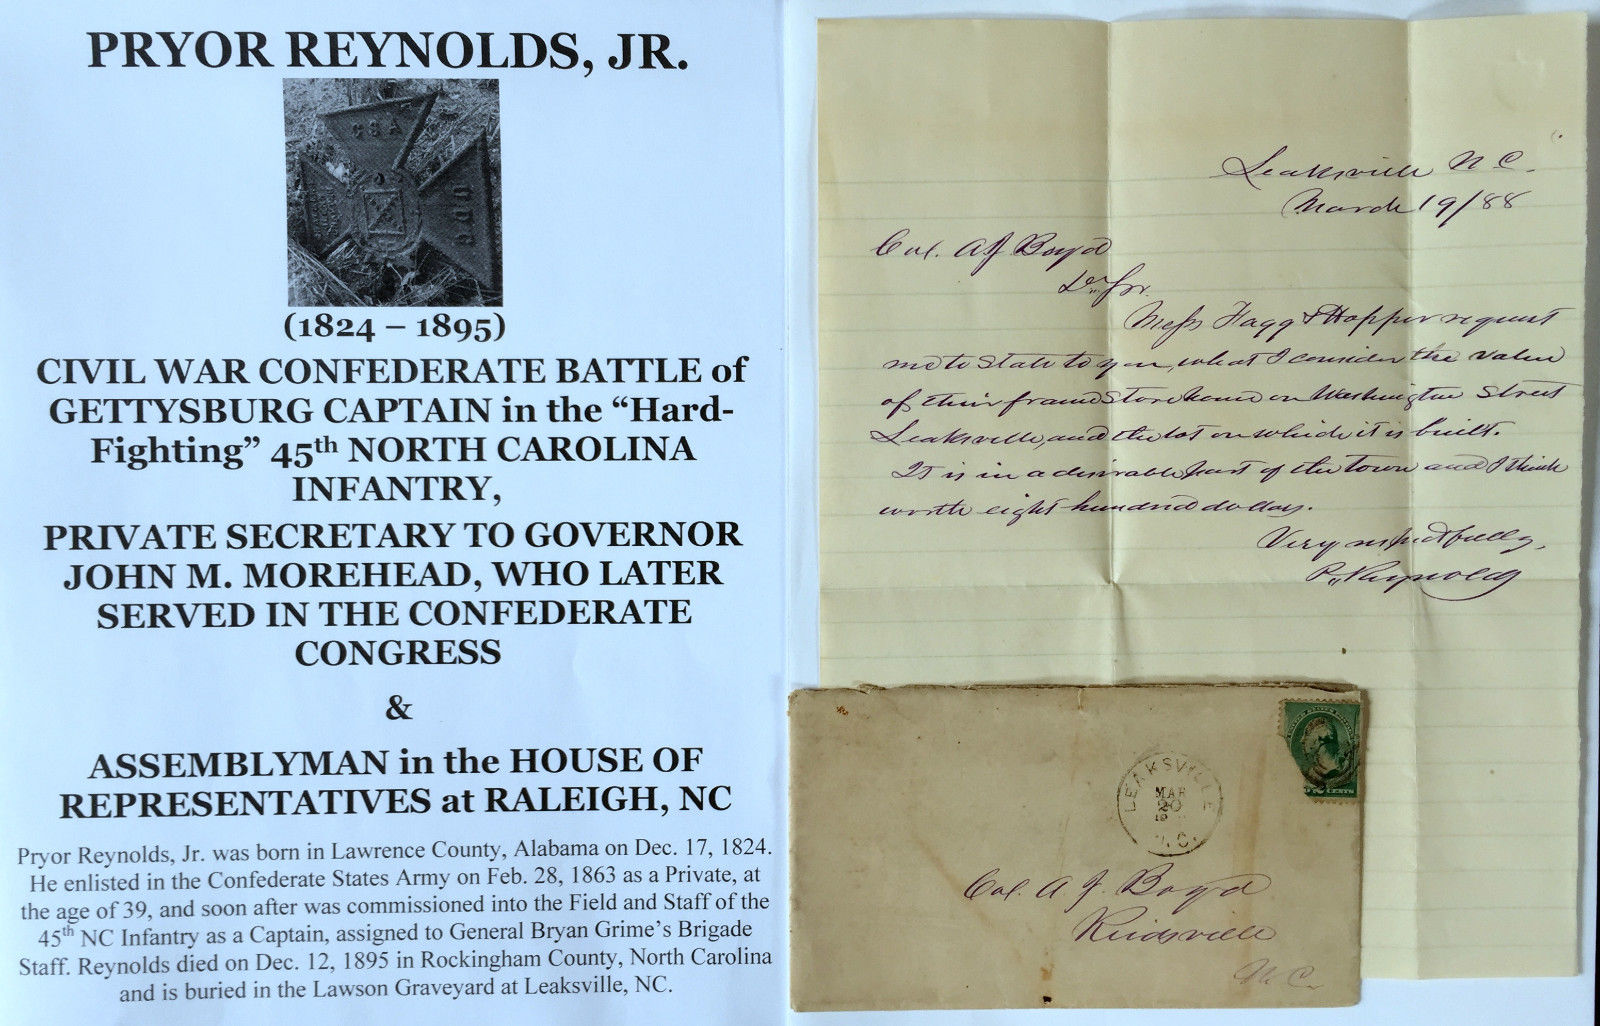 PRYOR REYNOLDS, JR.
CSA
(1824 – 1895)
CIVIL WAR CONFEDERATE BATTLE of
GETTYSBURG CAPTAIN in the “Hard-
Fighting” 45th NORTH CAROLINA
INFANTRY,
PRIVATE SECRETARY TO GOVERNOR
JOHN M. MOREHEAD, WHO LATER
SERVED IN THE CONFEDERATE
CONGRESS
&
ASSEMBLYMAN in the HOUSE OF
REPRESENTATIVES at RALEIGH, NC
Pryor Reynolds, Jr. was born in Lawrence County, Alabama on Dec. 17, 1824.
He enlisted in the Confederate States Army on Feb. 28, 1863 as a Private, at
the age of 39, and soon after was commissioned into the Field and Staff of the
45th NC Infantry as a Captain, assigned to General Bryan Grime’s Brigade
Staff. Reynolds died on Dec. 12, 1895 in Rockingham County, North Carolina
and is buried in the Lawson Graveyard at Leaksville, NC.
Leaksville N C.
March 19/88
Col. A J Boyd
Dr Sir.
Mess Flagg & Hopper request
me to state to you, what I consider the value
of their frame Store house on Washington Street
Leaksville, and the lot on which it is built.
It is in a desirable part of the town and I think
worth eight hundred dollars.
Very respectfully,
P. Reynolds
LEAKSVILLE
MAR
20
N.C.
CENTS
Col. A J. Boyd
Reidsville
N C.